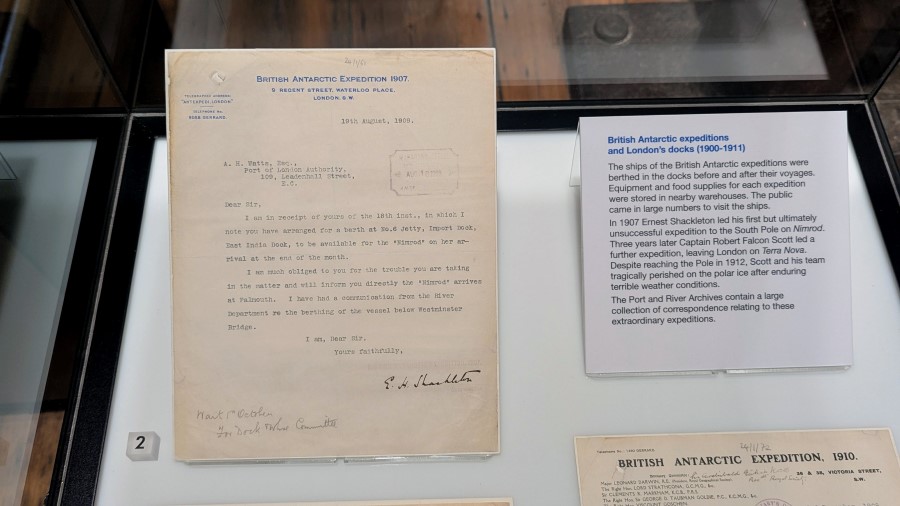 BRITISH ANTARCTIC EXPEDITION 1907.
9 REGENT STREET, WATERLOO PLACE,
LONDON, S.W.
TELEGRAPHIC ADDRESS,
"ANTEXPEDI, LONDON"
TELEPHONE No.
GERRARD.
19th August, 1909.
A. H. Watts, Esq.,
Port of London Authority,
109, Leadenhall Street,
E.C.
Dear Sir,
I am in receipt of yours of the 18th inst., in which I
note you have arranged for a berth at No.6 Jetty, Import Dock,
East India Dock, to be available for the "Nimrod" on her ar-
rival at the end of the month.
I am much obliged to you for the trouble you are taking
in the matter and will inform you directly the "Nimrod" arrives
at Falmouth. I have had a communication from the River
Department re the berthing of the vessel below Westminster
Bridge.
I am, Dear Sir,
Yours faithfully,
E. H. Shackleton
Wait 1st October
For Dock Committee
2
British Antarctic expeditions
and London's docks (1900-1911)
The ships of the British Antarctic expeditions were
berthed in the docks before and after their voyages.
Equipment and food supplies for each expedition
were stored in nearby warehouses. The public
came in large numbers to visit the ships.
In 1907 Ernest Shackleton led his first but ultimately
unsuccessful expedition to the South Pole on Nimrod.
Three years later Captain Robert Falcon Scott led a
further expedition, leaving London on Terra Nova.
Despite reaching the Pole in 1912, Scott and his team
tragically perished on the polar ice after enduring
terrible weather conditions.
The Port and River Archives contain a large
collection of correspondence relating to these
extraordinary expeditions.
BRITISH ANTARCTIC EXPEDITION, 1910.
36 & 38, VICTORIA STREET,
S.W.
Major LEONARD DARWIN, R.E.
The Right Hon. LORD STRATHCONA, G.C.M.G., &c.
Sir CLEMENTS R. MARKHAM, K.C.B., F.R.S.
The Right Hon. Sir GEORGE D. TAUBMAN GOLDIE, P.C., K.C.M.G., &c.
The Right Hon. VISCOUNT GOSCHEN.